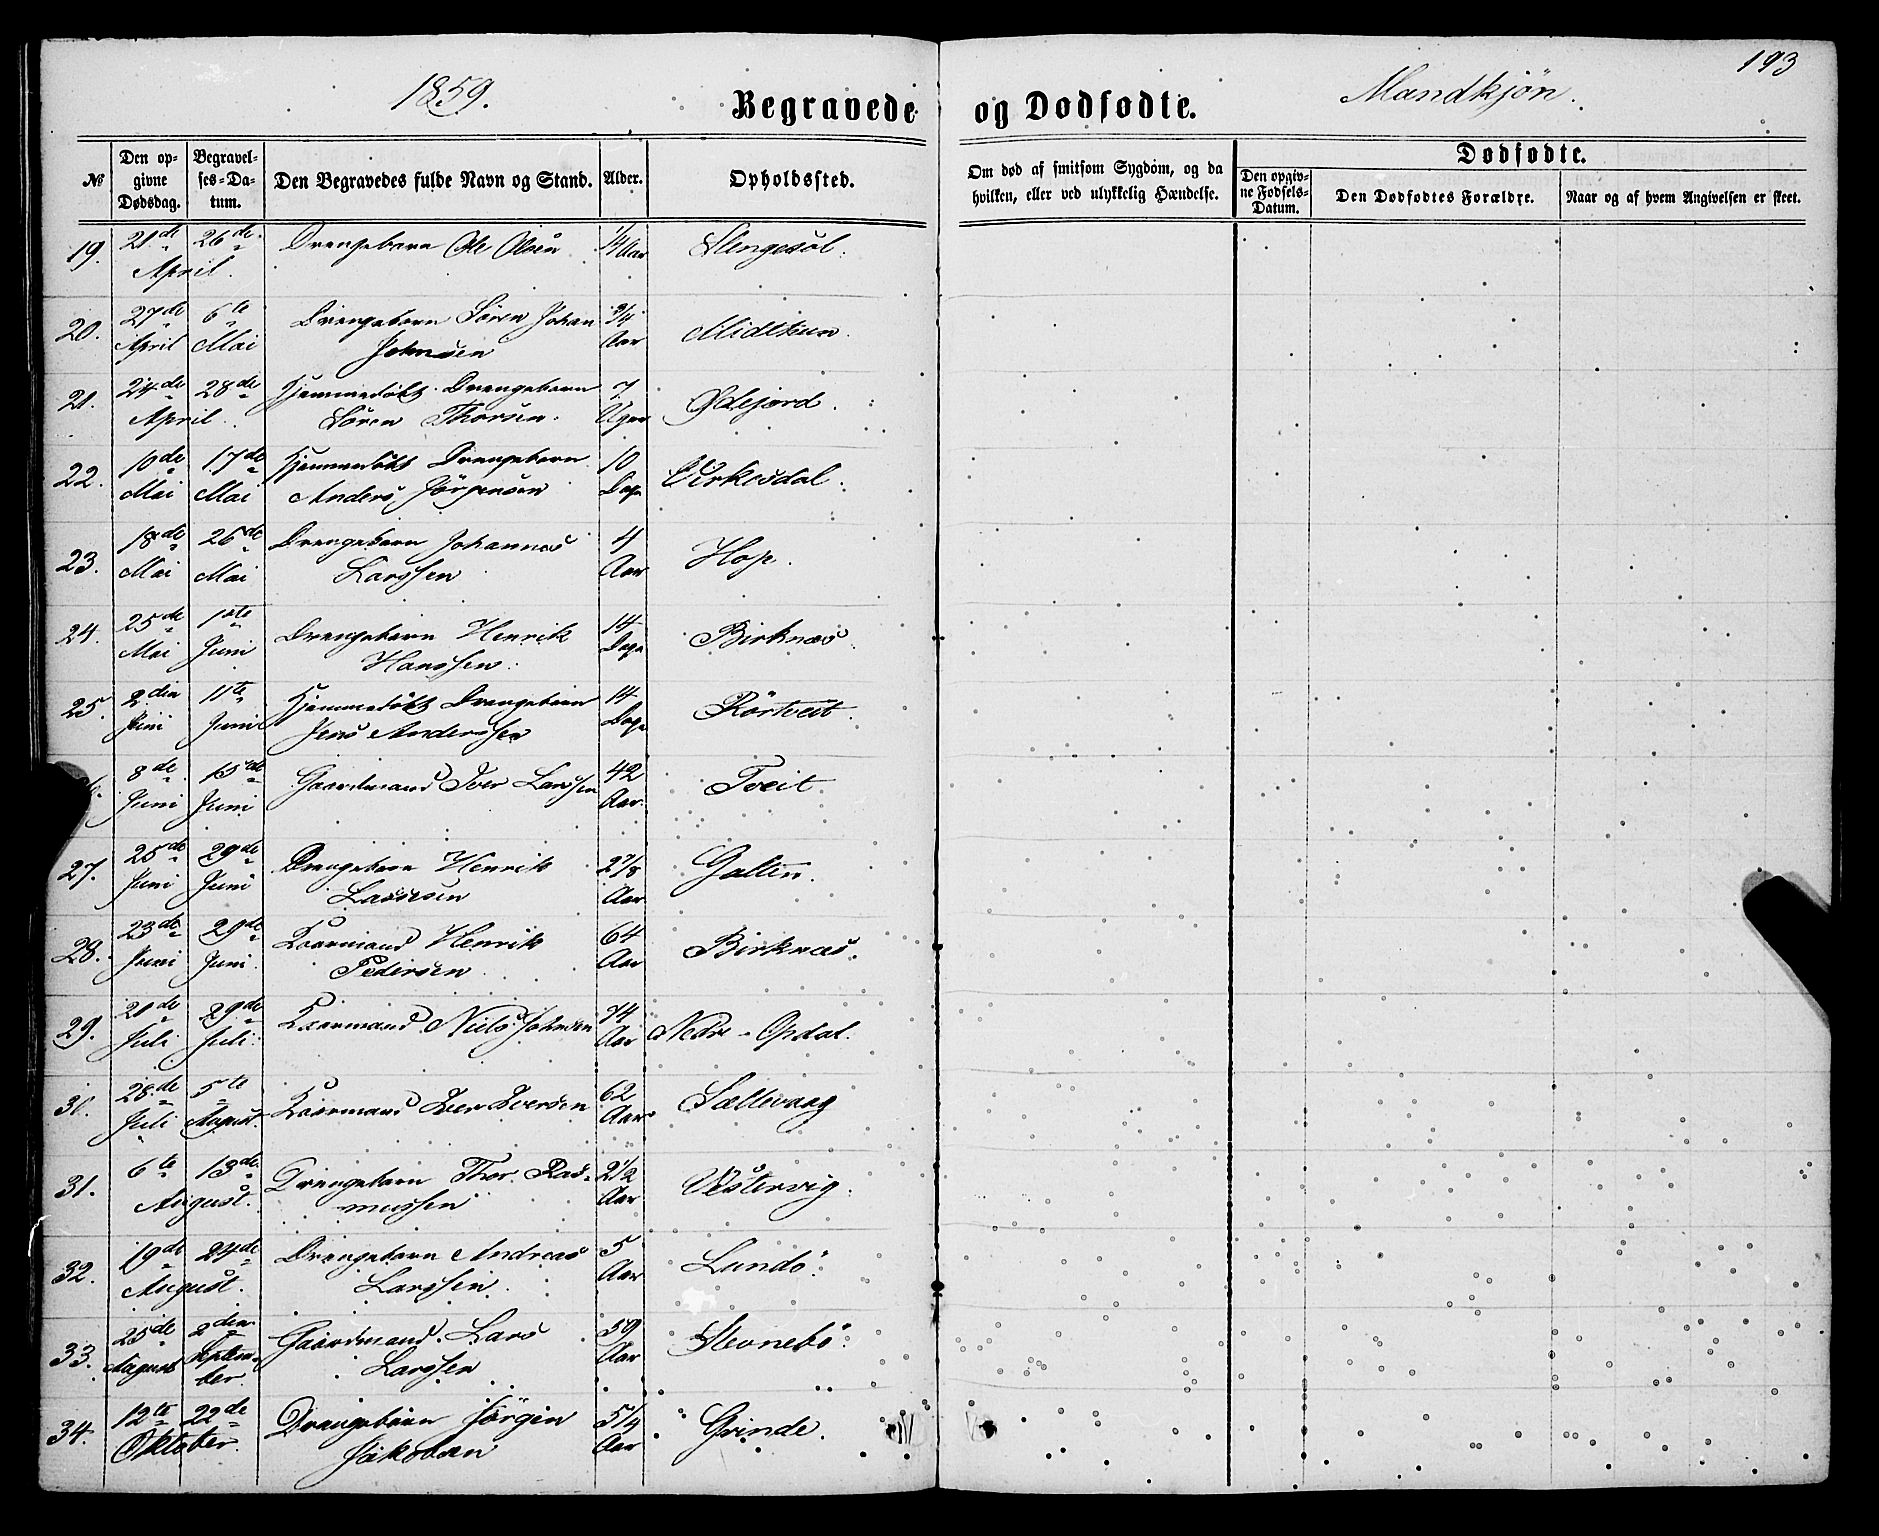 193
1859.
Mandkjøn.
Begravede og Dødfødte.
Dødfødte.
№
Den opgivne Dødsdag.
Begravelses-Datum.
Den Begravedes fulde Navn og Stand.
Alder.
Opholdssted.
Om død af smitsom Sygdom, og da hvilken, eller ved ulykkelig Hændelse.
Den opgivne Fødsels-Datum.
Den Dødfødtes Forældre.
Naar og af hvem Angivelsen er skeet.
19. 21de 26de Drengebarn Ole Olsen 1/4 Aar
April.
20. 27de 6te Drengebarn Sören Johan 3/4 Midthun.
April Mai Johnsen Aar
21. 24de 28de Hjemmedöbt Drengebarn 7 Ødejord.
April. Sören Thorsen. Uger
22. 10de 17de Hjemmedöbt Drengebarn 10 Virkesdal.
Mai Mai Anders Jörgensen Dage
23. 18de 26de Drengebarn Johannes 4 Hop.
Mai Mai Larssen Aar
24. 25de 1ste Drengebarn Henrik 14 Birknæs.
Mai Juni Hanssen. Dage
25. 2den 11te Hjemmedöbt Drengebarn 14 Rörtveit.
Juni Juni Jens Anderssen Dage
8de 15de Gaardmand Iver Larssen 42 Tveit.
Juni Juni Aar.
27. 25de 29de Drengebarn Henrik 2 7/8 Galten.
Juni Juni Lassesen Aar
28. 23de 29de Kaarmand Henrik 64 Birknæs.
Juni Juni. Pedersen Aar
29. 21de 29de Kaarmand Niels Johnsen 74 Nedre-Opdal.
Juli Juli. Aar
30. 28de 5te Kaarmand Iver Iversen 62 Sællevaag
Juli August. Aar
31. 6te 13de Drengebarn Thor Ras- 2 1/2 Vestervig.
August. mussen Aar
32. 19de 24de Drengebarn Andreas 5 Lundö.
August. Larssen. Aar
33. 25de 2den Gaardmand Lars 59
August Septem- Larssen Aar
ber.
34. 12te 22de Drengebarn Jörgen 5 1/4 Grinde.
Oktober. Jakobsen Aar